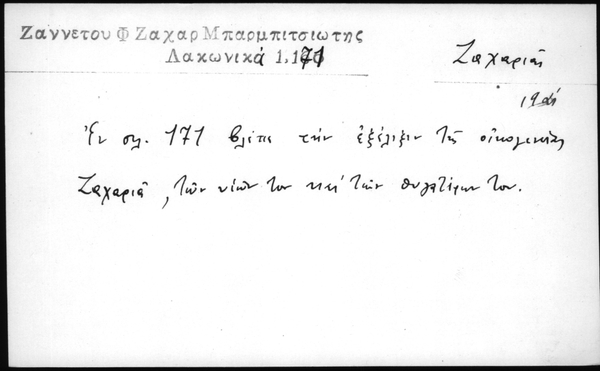 Ζαννετου Φ Ζαχαρ Μπαρμπιτσιωτης
Λακωνικά 1.171
Ζαχαριᾶς
Ἐν σελ. 171 βλέπε τὴν ἐξέλιξιν τῆς οἰκογενείας
Ζαχαριᾶ, τῶν υἱῶν του καὶ τῶν θυγατέρων του.